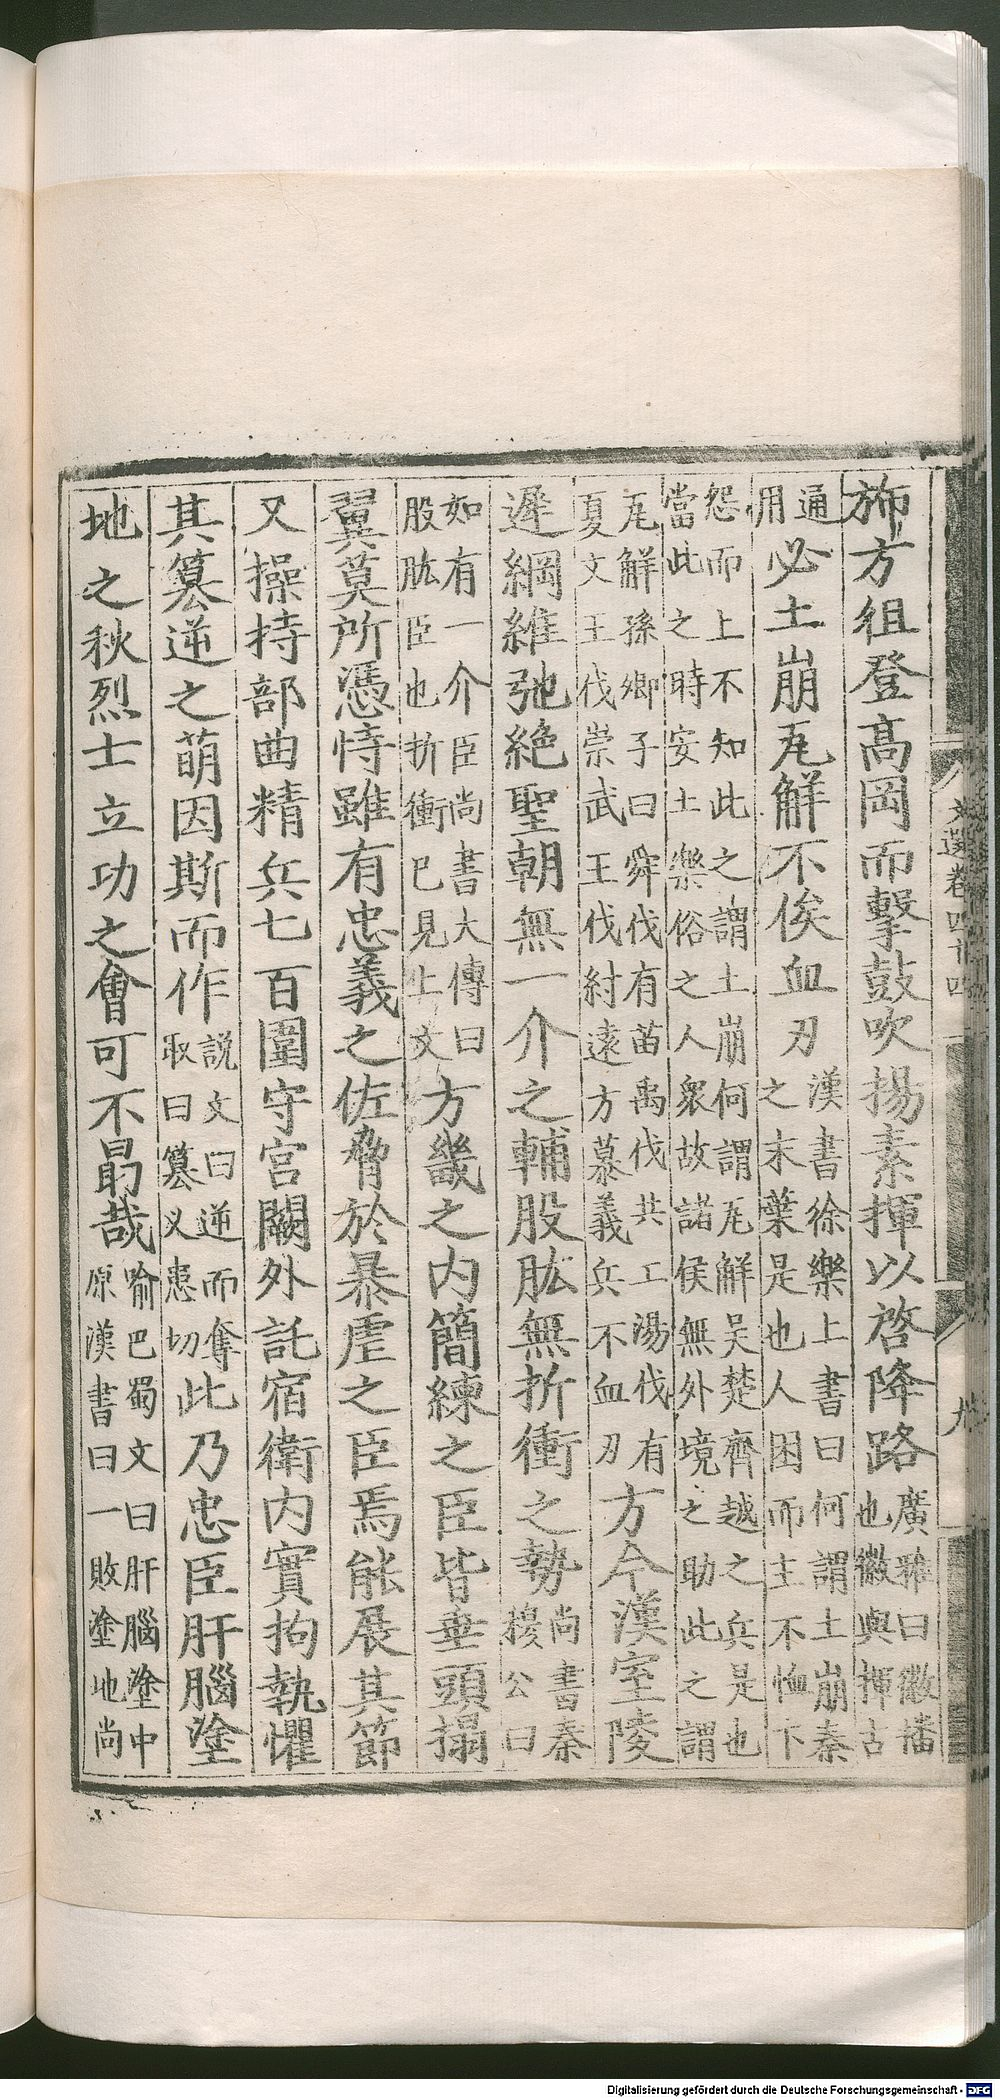 文選卷四十四
旆方徂登高岡而擊鼓吹揚素揮以啓降路廣雅曰徽幡也徽與揮古
通用必土崩瓦解不俟血刃漢書徐樂上書曰何謂土崩秦之末葉是也人困而主不恤下
怨而上不知此之謂土崩何謂瓦解吳楚齊越之兵是也當此之時安土樂俗之人衆故諸侯無外境之助此之謂
瓦解孫卿子曰舜伐有苗禹伐共工湯伐有夏文王伐崇武王伐紂遠方慕義兵不血刃方今漢室陵
遲綱維弛絶聖朝無一介之輔股肱無折衝之勢尚書秦穆公曰
如有一介臣尚書大傳曰股肱臣也折衝已見上文方畿之内簡練之臣皆垂頭搨
翼莫所憑恃雖有忠義之佐脅於暴虐之臣焉能展其節
又操持部曲精兵七百圍守宮闕外託宿衛内實拘執懼
其篡逆之萌因斯而作説文曰逆而奪取曰篡义患切此乃忠臣肝腦塗
地之秋烈士立功之會可不勗哉喻巴蜀文曰肝腦塗中原漢書曰一敗塗地尚
Digitalisierung gefördert durch die Deutsche Forschungsgemeinschaft - DFG